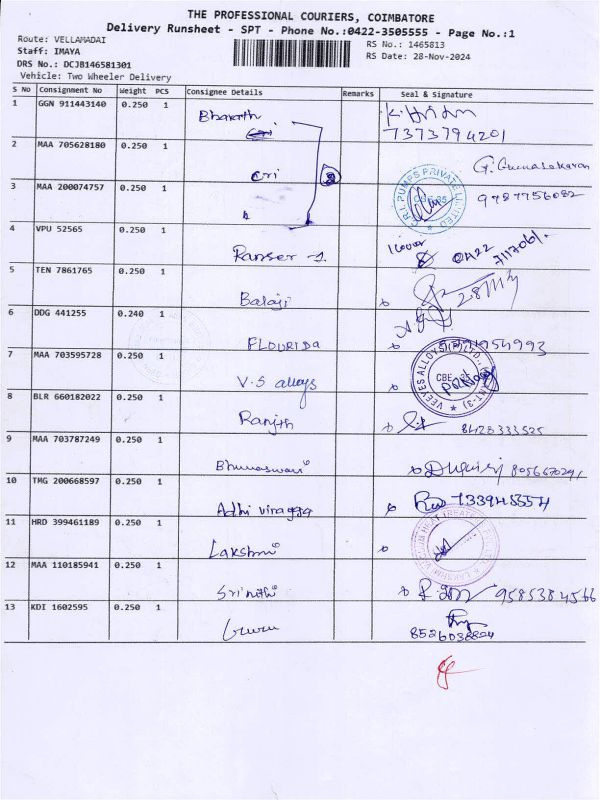 THE PROFESSIONAL COURIERS, COIMBATORE
Delivery Runsheet - SPT - Phone No.:0422-3505555 - Page No.:1
Route: VELLAMADAI
RS No.: 1465813
Staff: IMAYA
RS Date: 28-Nov-2024
DRS No.: DCJB146581301
Vehicle: Two Wheeler Delivery
S No Consignment No Weight PCS Consignee Details Remarks Seal & Signature
1 GGN 911443140 0.250 1 Bharath
7373794201
2 MAA 705628180 0.250 1 Cri 2 G. Gunasekaran
3 MAA 200074757 0.250 1 C.R.I. PUMPS PRIVATE LIMITED 9787756082
4 VPU 52565 0.250 1 0422
7117061
5 TEN 7861765 0.250 1 Balaji 28/11/24
6 DDG 441255 0.240 1 FLOURIDA
7 MAA 703595728 0.250 1 V.S alloys VEEYES ALLOYS
8 BLR 660182022 0.250 1 Ranjith 8428333525
9 MAA 703787249 0.250 1 Bhuvaswari
10 TMG 200668597 0.250 1 Adhi viragga
11 HRD 399461189 0.250 1 Lakshmi
12 MAA 110185941 0.250 1 Srinithi 9585384566
13 KDI 1602595 0.250 1 Guru